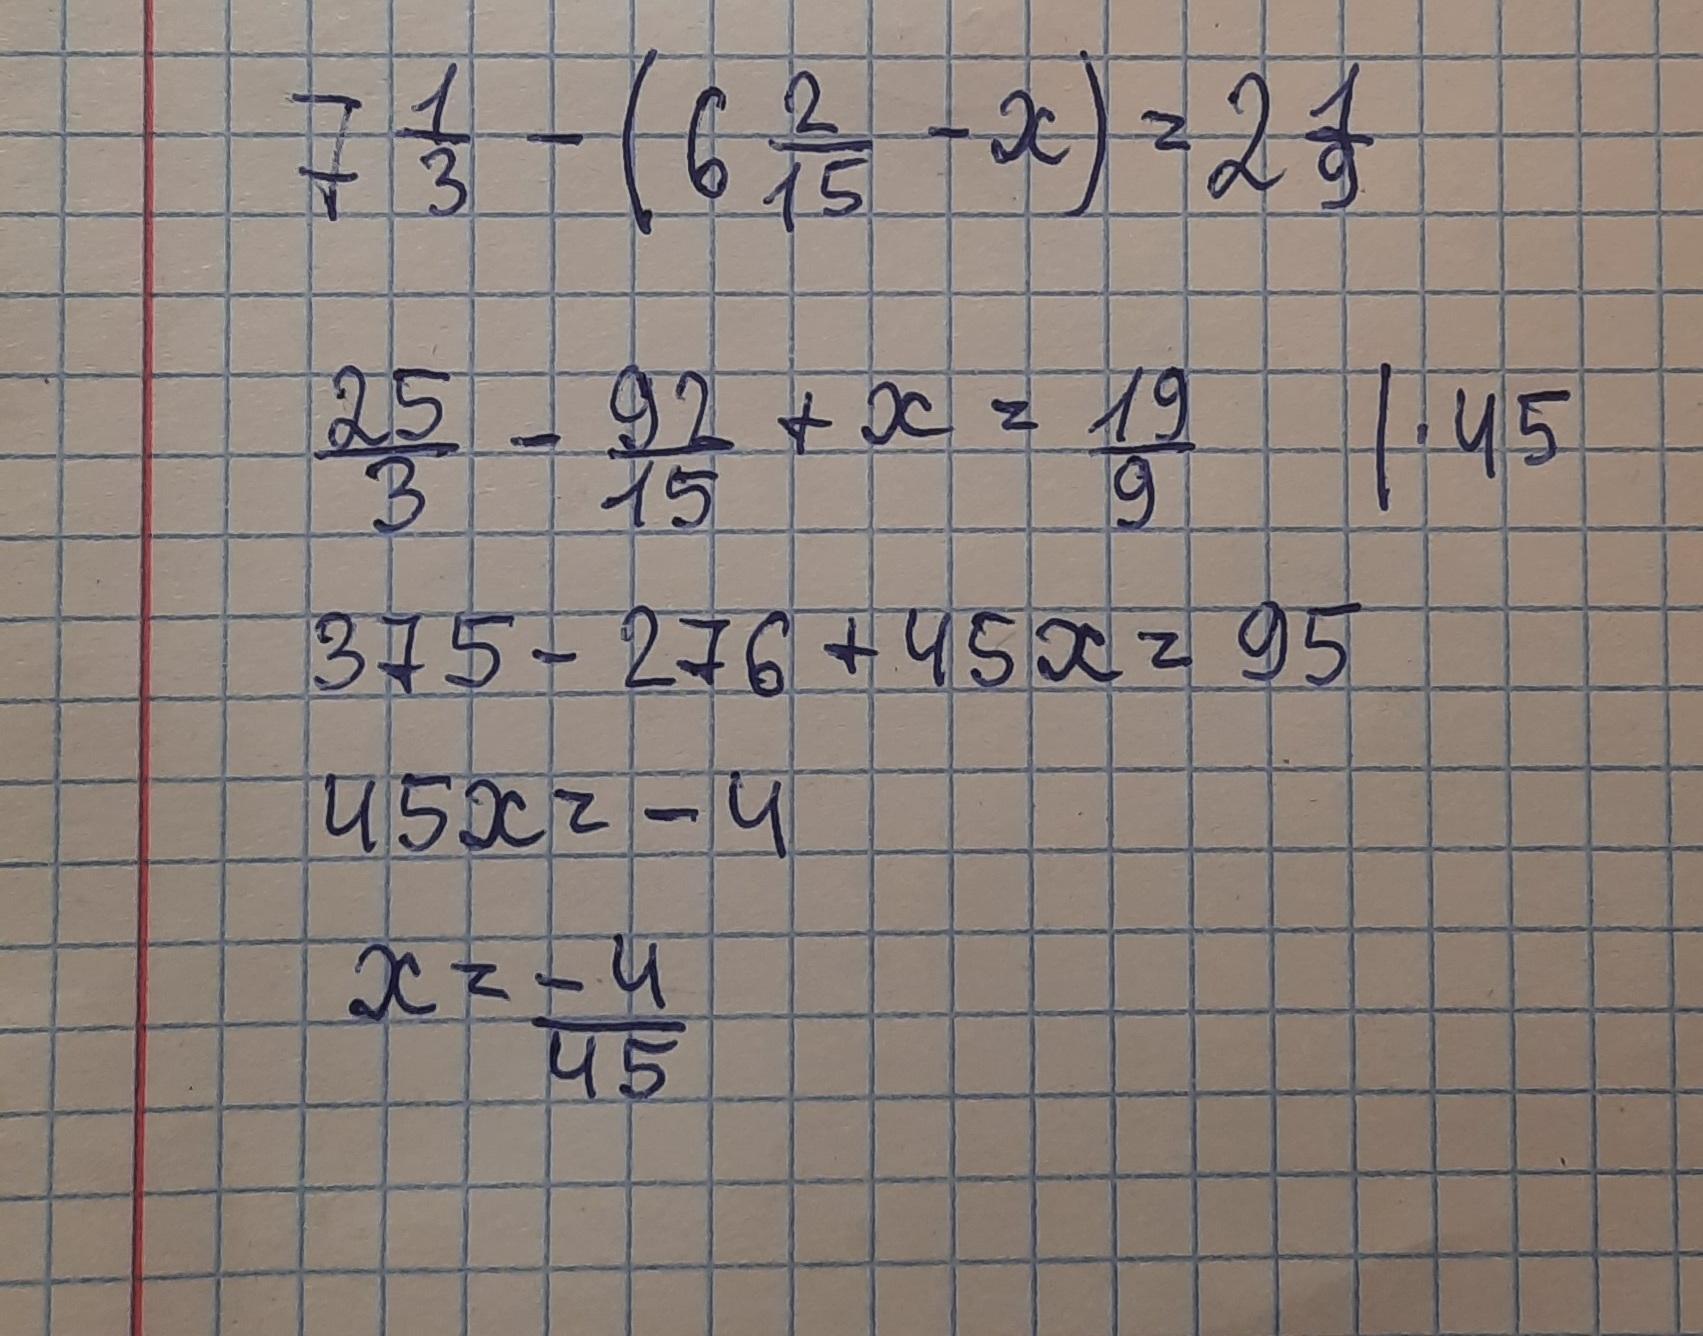 7 1/3 - (6 2/15 - x) = 2 1/9
25/3 - 92/15 + x = 19/9 | · 45
375 - 276 + 45x = 95
45x = - 4
x = -4/45